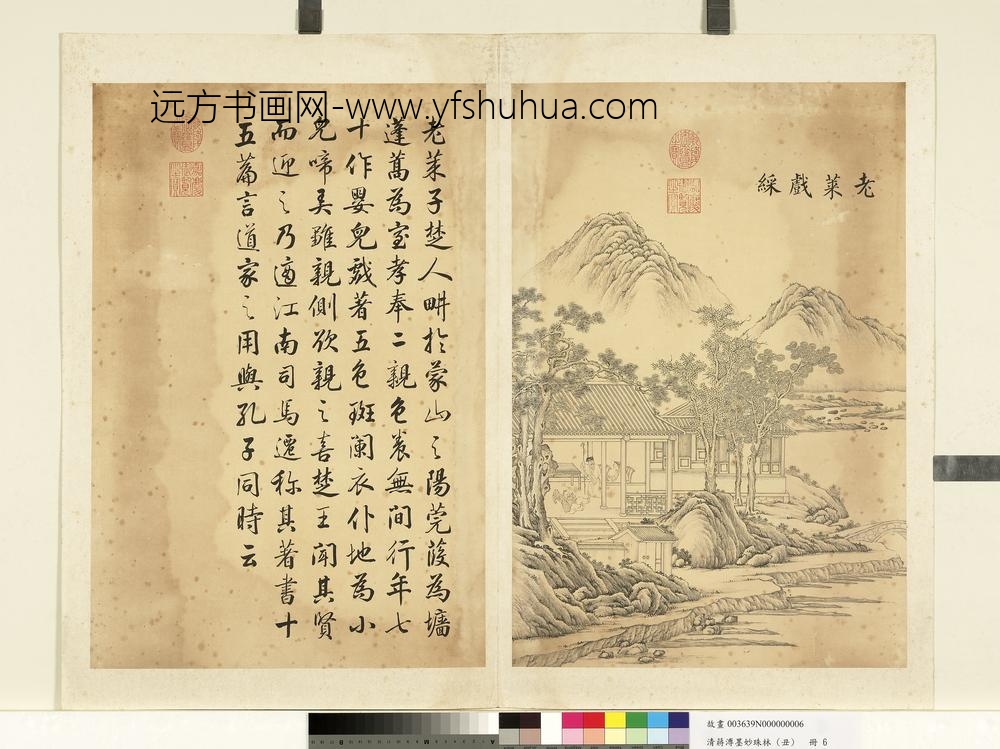 远方书画网-www.yfshuhua.com
老萊戲綵
老萊子楚人畊於蒙山之陽莞葭為墻
蓬蒿為室孝奉二親色養無間行年七
十作嬰兒戲著五色斑闌衣仆地為小
兒啼弄雛親側欲親之喜楚王聞其賢
而迎之乃適江南司馬遷称其著書十
五篇言道家之用與孔子同時云
故畫 003639N000000006
清蔣溥墨妙珠林（丑） 冊 6